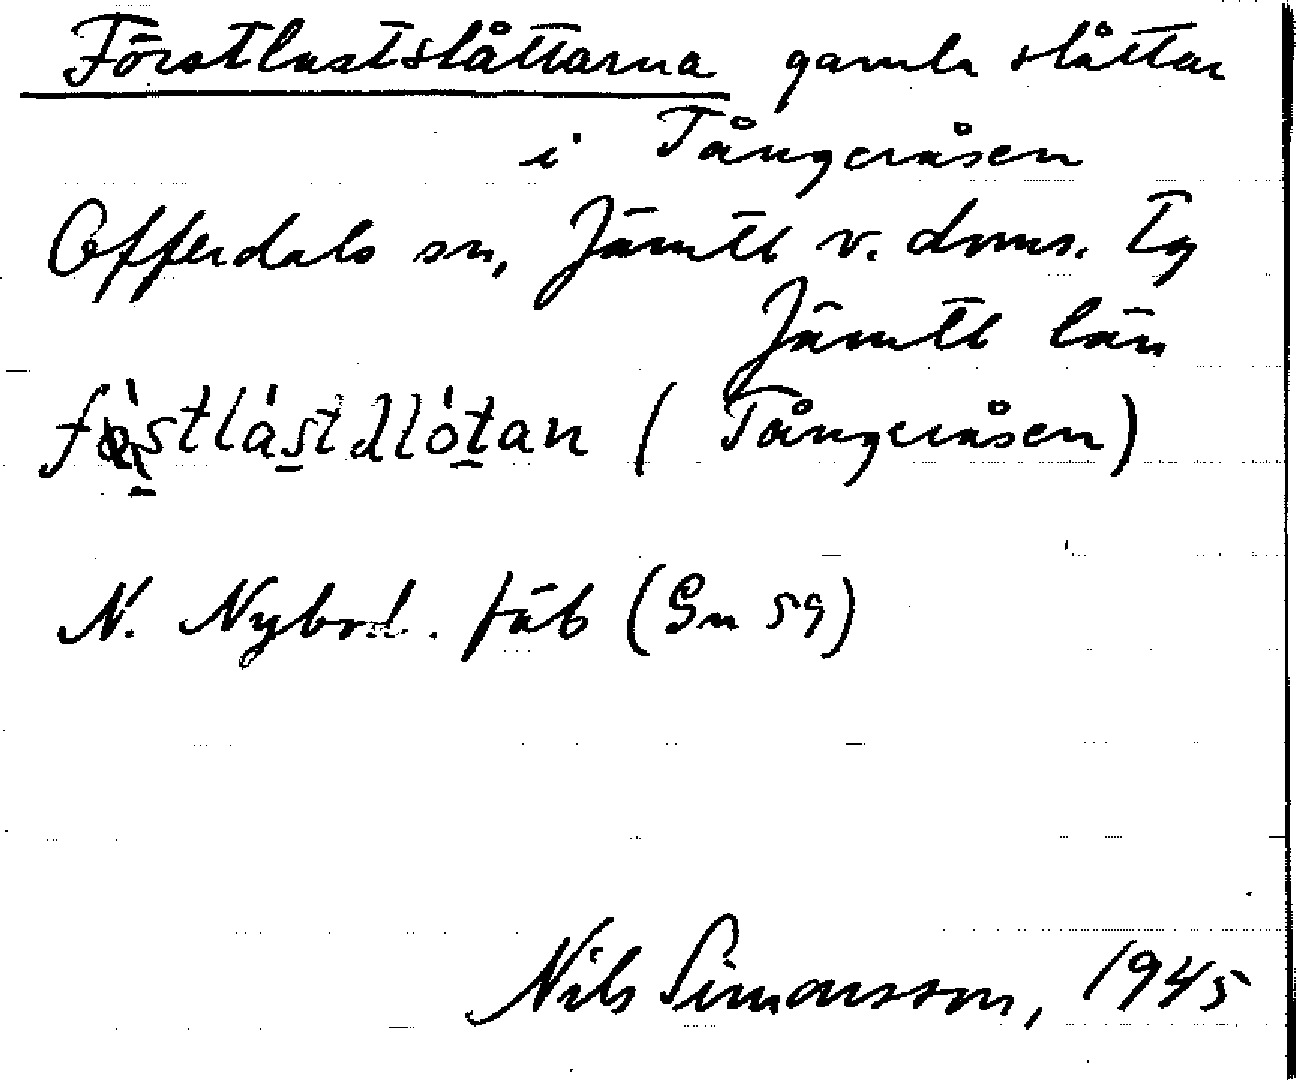 Förstlastslåttarna gamla slåttar
i Tångeråsen
Offerdals sn, Jämtl v. doms. Tg
Jämtl län
(Tångeråsen)
N. Nybod. fäb (Gn 59)
Nils Simonsson, 1945